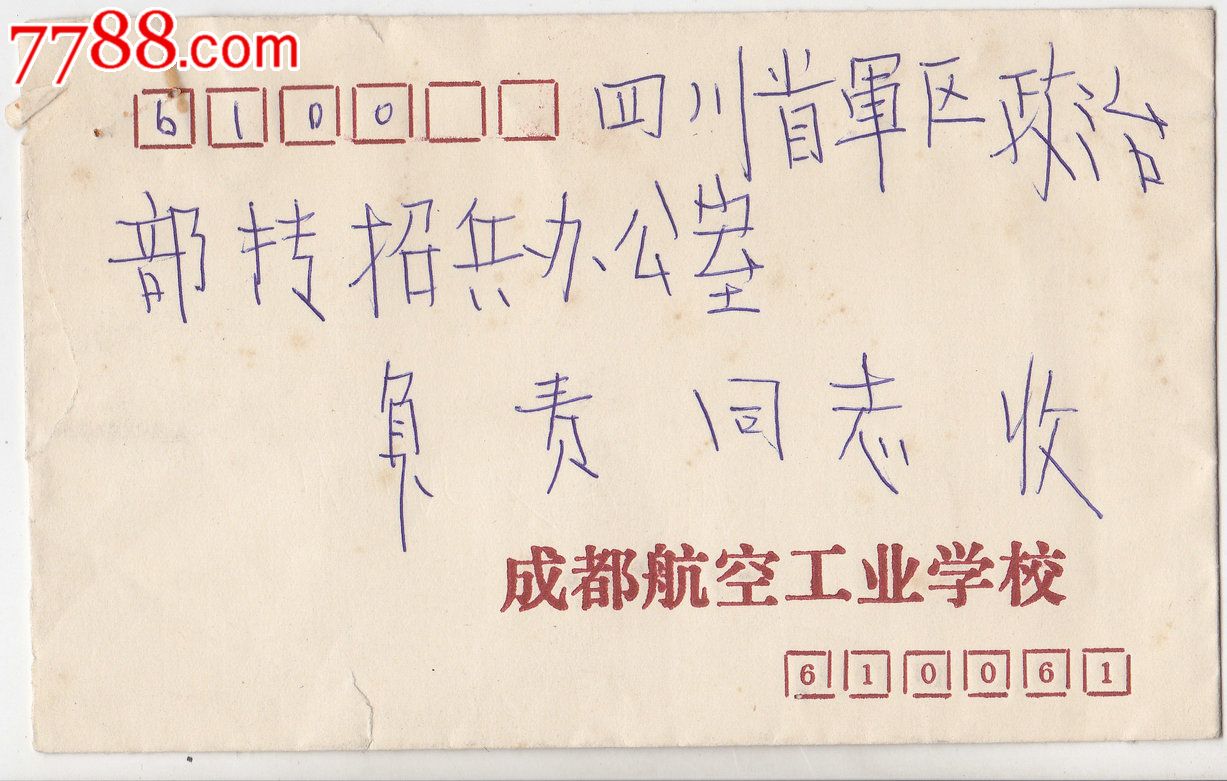 7788.com
6100 四川省軍区政治
部特招兵办公室
负责同志收
成都航空工业学校
610061